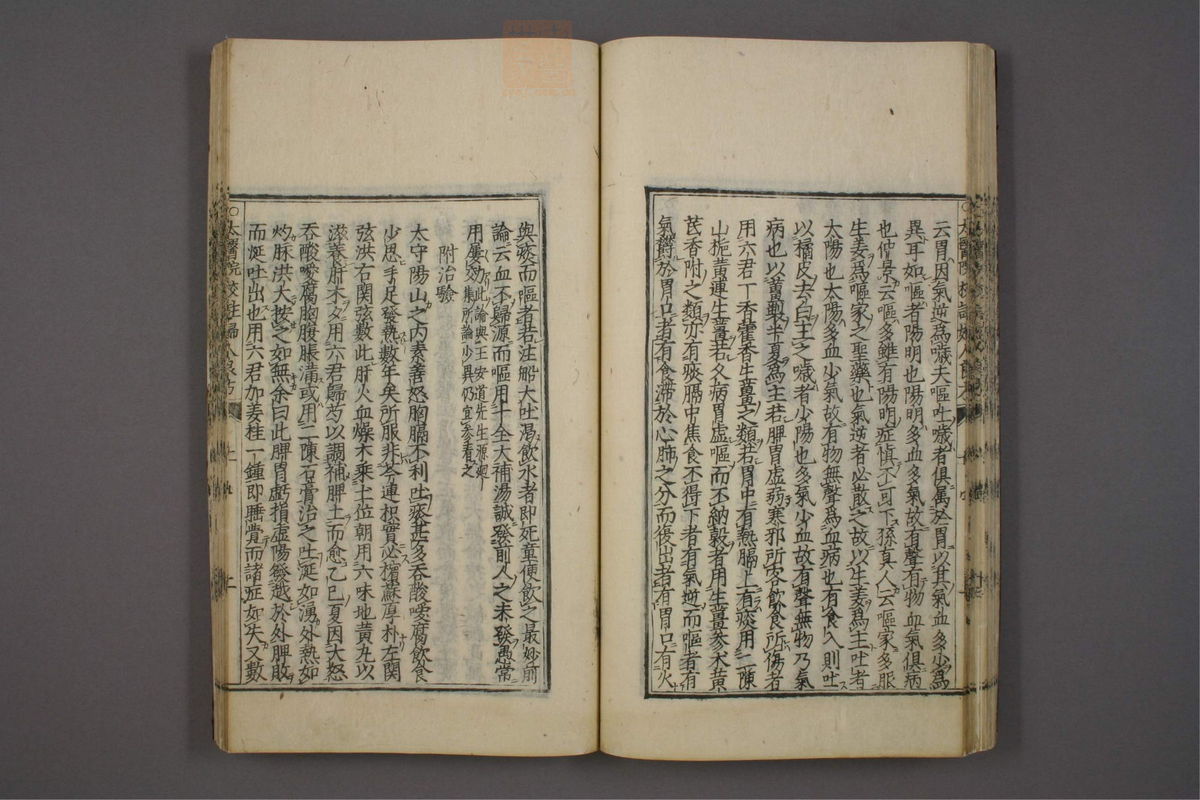 云胃因氣逆爲噦夫嘔吐噦者俱屬於胃以其氣血多少爲
異耳如嘔者陽明也陽明多血多氣故有聲有物血氣俱病
也仲景云嘔多雖有陽明症慎不可下孫真人云嘔家多服
生姜爲嘔家之聖藥也氣逆者必散之故以生姜爲主吐者
太陽也太陽多血少氣故有物無聲爲血病也有食入則吐
以橘皮去白主之噦者少陽也多氣少血故有聲無物乃氣
病也以薑製半夏爲主若脾胃虛弱寒邪所客飲食所傷者
用六君丁香藿香生薑之類若胃中有熱膈上有痰用二陳
山梔黄連生薑若久病胃虛嘔而不納穀者用生薑參朮黄
芪香附之類亦有痰膈中焦食不得下者有氣逆而嘔者有
氣鬱於胃口者有食滯於心肺之分而復出者有胃口有火
與痰而嘔者若注船大吐渴飲水者即死童便飲之最妙前
論云血不歸源而嘔用十全大補湯誠發前人之未發愚常
用屢効此論與王安道先生源與
集所論少異仍宜參看之
附治驗
太守陽山之内素善怒胸膈不利吐痰甚多吞酸噯腐飲食
少思手足發熱數年矣所服非芩連枳實必檳蘇厚朴左関
弦洪右関弦數此肝火血燥木乘土位朝用六味地黄丸以
滋養肝木夕用六君歸芍以調補脾土而愈乙巳夏因大怒
吞酸噯腐胸腹脹滿或用二陳石膏治之吐涎如湧外熱如
灼脉洪大按之如無余曰此脾胃虧損虛陽發越於外脾敗
而涎吐出也用六君加姜桂一鍾即睡覺而諸症如失又數
太醫院校註婦人良方